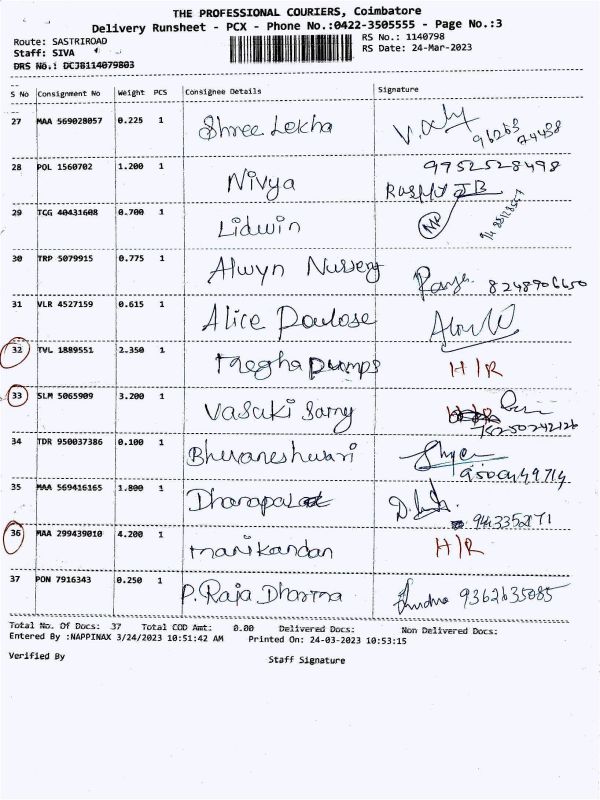 THE PROFESSIONAL COURIERS, Coimbatore
Delivery Runsheet - PCX - Phone No.:0422-3505555 - Page No.:3
Route: SASTRIROAD RS No.: 1140798
Staff: SIVA RS Date: 24-Mar-2023
DRS No.: DCJB114079803
S No Consignment No Weight PCS Consignee Details Signature
27 MAA 569028057 0.225 1 Shree Lekha 96263 74438
28 POL 1560702 1.200 1 Nivya 9752528498
29 TCG 40431608 0.700 1 Lidwin
30 TRP 5079915 0.775 1 Alwyn Nursery 8248906650
31 VLR 4527159 0.615 1 Alice Poulose
32 TVL 1889551 2.350 1 Megha pumps H/R
33 SLM 5065909 3.200 1 Vasuki Samy
34 TDR 950037386 0.100 1 Bhuvaneshwari
35 MAA 569416165 1.800 1 Dhanapal
36 MAA 299439010 4.200 1 manikandan H/R
37 PON 7916343 0.250 1 P. Raja Dharma 9362635085
Total No. Of Docs: 37 Total COD Amt: 0.00 Delivered Docs: Non Delivered Docs:
Entered By :NAPPINAX 3/24/2023 10:51:42 AM Printed On: 24-03-2023 10:53:15
Verified By Staff Signature